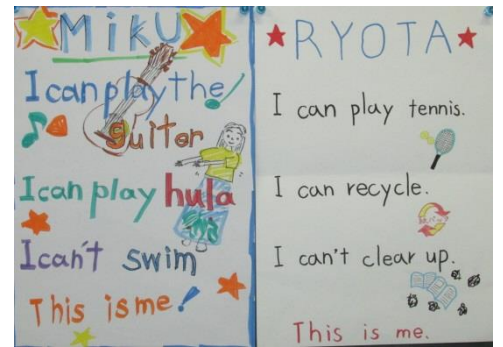 MiKU
I can play the
guiter
I can play hula
I can't swim
This is me!
RYOTA
I can play tennis.
I can recycle.
I can't clear up.
This is me.